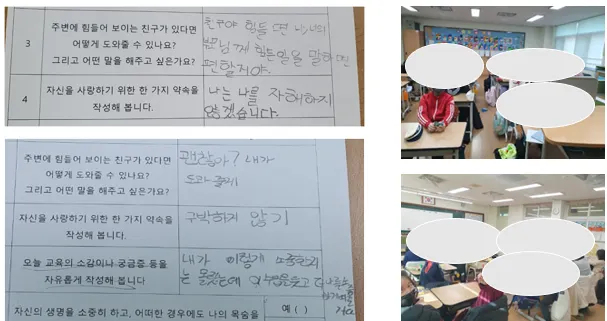 3
주변에 힘들어 보이는 친구가 있다면
어떻게 도와줄 수 있나요?
그리고 어떤 말을 해주고 싶은가요?
친구야 힘들면 나,너의
부모님께 힘든일을 말하면
편할거야.
4
자신을 사랑하기 위한 한 가지 약속을
작성해 봅니다.
나는 나를 자해하지
않겠습니다.
주변에 힘들어 보이는 친구가 있다면
어떻게 도와줄 수 있나요?
그리고 어떤 말을 해주고 싶은가요?
괜찮아? 내가
도와 줄게
자신을 사랑하기 위한 한 가지 약속을
작성해 봅니다.
구박하지 않기
오늘 교육의 소감이나 궁금증 등을
자유롭게 작성해 봅니다
내가 이렇게 소중한지
는 몰랐는데
자신의 생명을 소중히 하고, 어떠한 경우에도 나의 목숨을
예 ( )